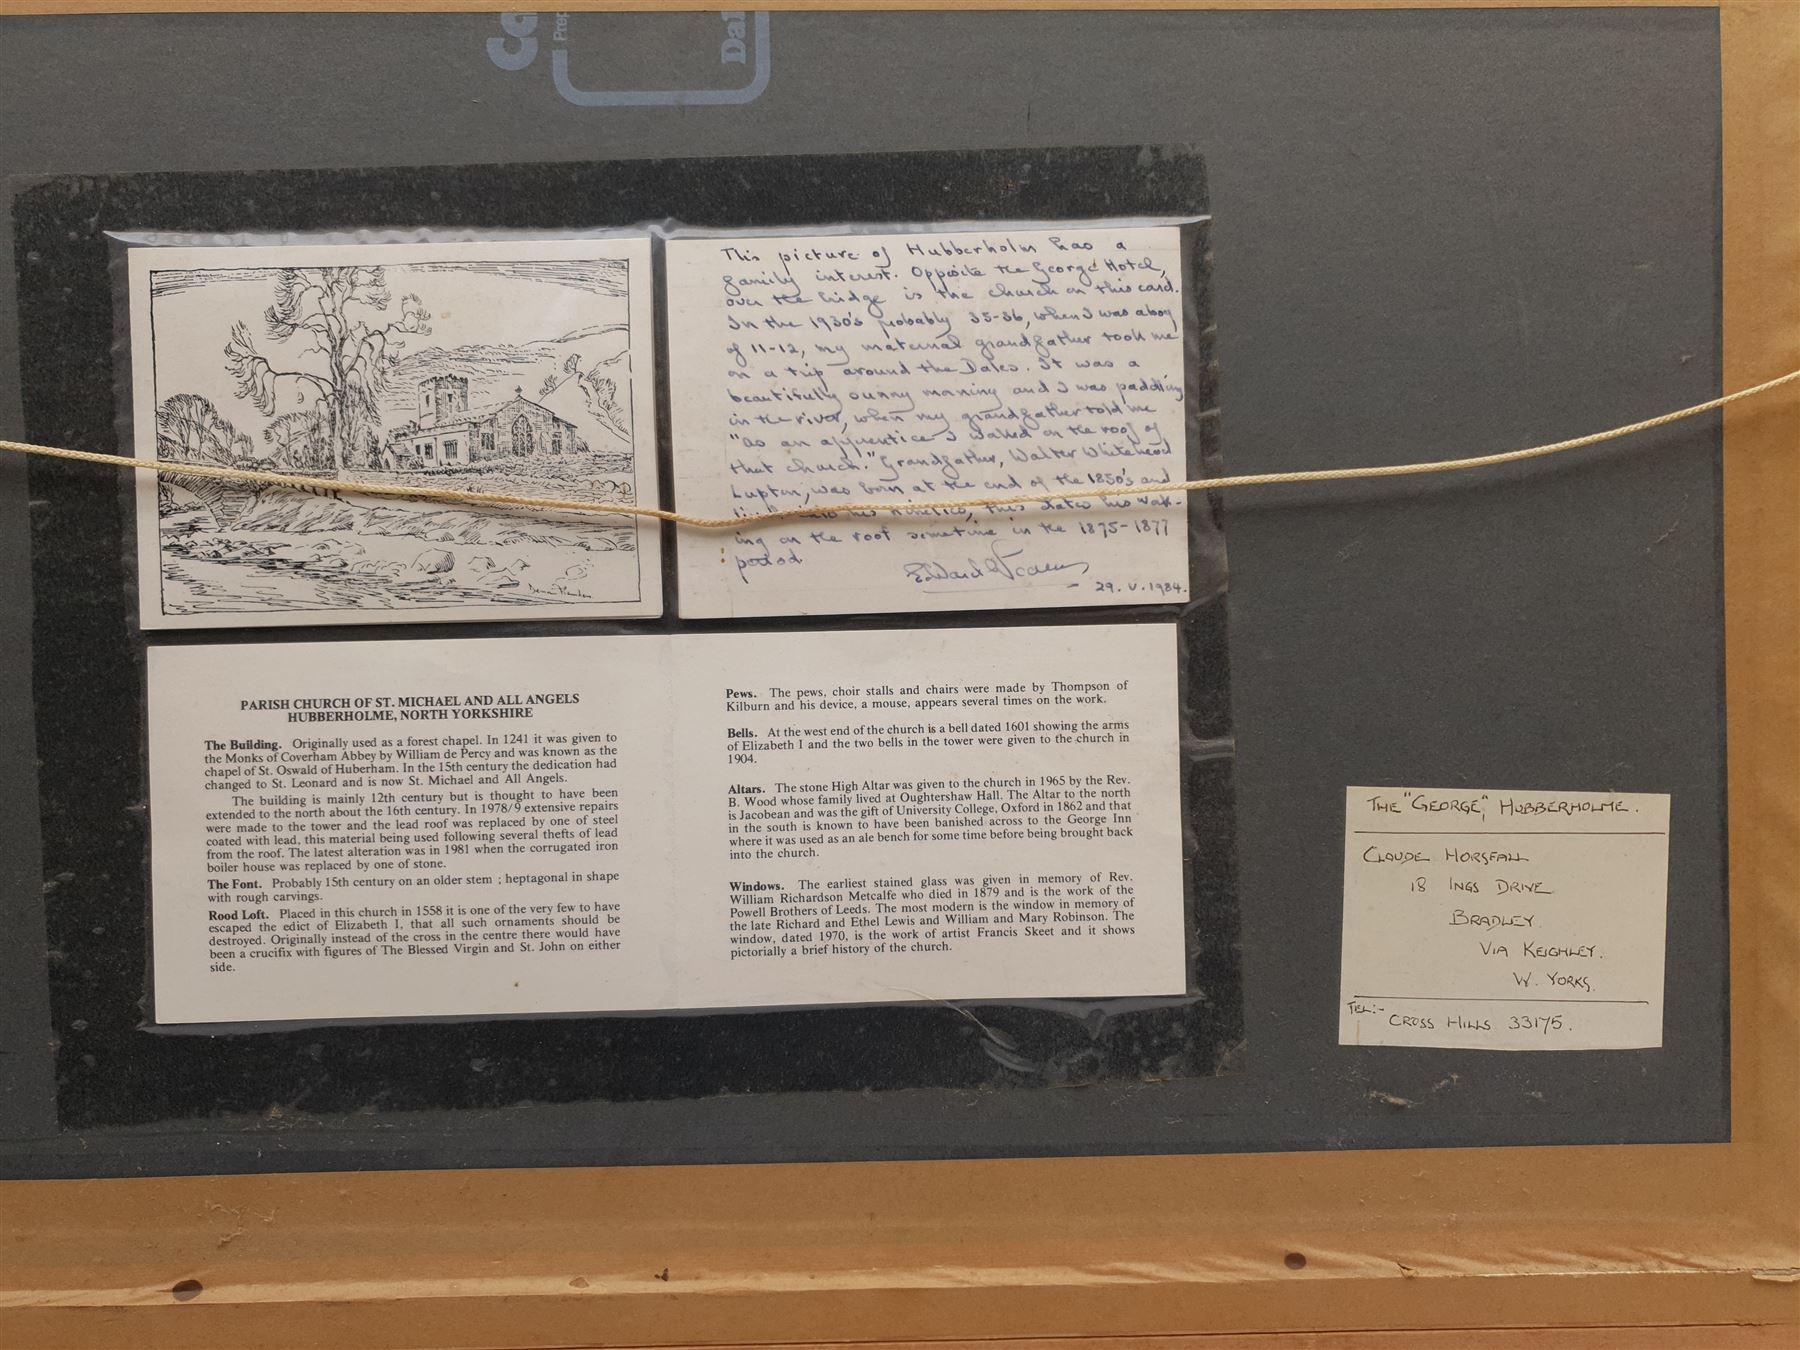 Ca
Prep
Dal
This picture of Hubberholm has a
family interest. Opposite the George Hotel,
over the bridge is the church on this card.
In the 1930's probably 35-36, when I was a boy
of 11-12, my maternal grandfather took me
on a trip around the Dales. It was a
beautifully sunny morning and I was paddling
in the river, when my grandfather told me
"as an apprentice I walked on the roof of
that church." Grandfather, Walter Whitehead
Lupton, was born at the end of the 1850's and
into his nineties, this dates his walk-
ing on the roof sometime in the 1875-1877
period
Edward
29. V. 1984.
PARISH CHURCH OF ST. MICHAEL AND ALL ANGELS
HUBBERHOLME, NORTH YORKSHIRE
The Building. Originally used as a forest chapel. In 1241 it was given to
the Monks of Coverham Abbey by William de Percy and was known as the
chapel of St. Oswald of Huberham. In the 15th century the dedication had
changed to St. Leonard and is now St. Michael and All Angels.
The building is mainly 12th century but is thought to have been
extended to the north about the 16th century. In 1978/9 extensive repairs
were made to the tower and the lead roof was replaced by one of steel
coated with lead, this material being used following several thefts of lead
from the roof. The latest alteration was in 1981 when the corrugated iron
boiler house was replaced by one of stone.
The Font. Probably 15th century on an older stem ; heptagonal in shape
with rough carvings.
Rood Loft. Placed in this church in 1558 it is one of the very few to have
escaped the edict of Elizabeth I, that all such ornaments should be
destroyed. Originally instead of the cross in the centre there would have
been a crucifix with figures of The Blessed Virgin and St. John on either
side.
Pews. The pews, choir stalls and chairs were made by Thompson of
Kilburn and his device, a mouse, appears several times on the work.
Bells. At the west end of the church is a bell dated 1601 showing the arms
of Elizabeth I and the two bells in the tower were given to the church in
1904.
Altars. The stone High Altar was given to the church in 1965 by the Rev.
B. Wood whose family lived at Oughtershaw Hall. The Altar to the north
is Jacobean and was the gift of University College, Oxford in 1862 and that
in the south is known to have been banished across to the George Inn
where it was used as an ale bench for some time before being brought back
into the church.
Windows. The earliest stained glass was given in memory of Rev.
William Richardson Metcalfe who died in 1879 and is the work of the
Powell Brothers of Leeds. The most modern is the window in memory of
the late Richard and Ethel Lewis and William and Mary Robinson. The
window, dated 1970, is the work of artist Francis Skeet and it shows
pictorially a brief history of the church.
THE "GEORGE", HUBBERHOLME.
CLAUDE HORSFALL
18 INGS DRIVE
BRADLEY.
VIA KEIGHLEY.
W. YORKS.
TEL:- CROSS HILLS 33175.